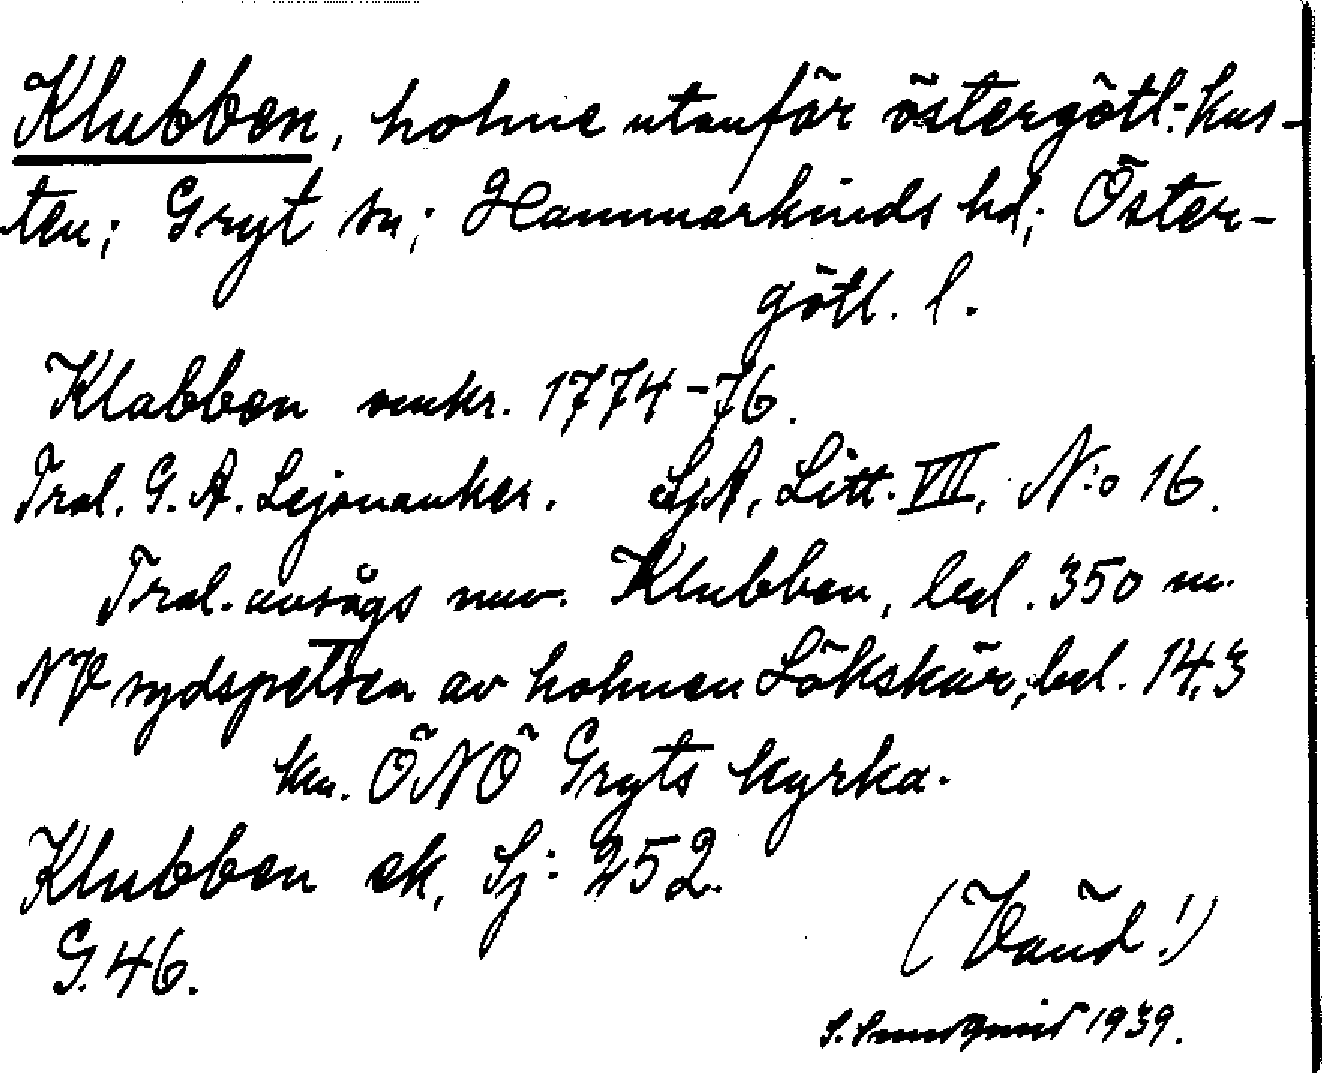 Klubben, holme utanför östergötl. kus-
ten; Gryt sn; Hammarkinds hd; Öster-
götl. l.
Klabben omkr. 1774-76.
Trol. G. A. Lejonanker. SjA, Litt. VII, N:o 16.
Trol. avsågs nuv. Klubben, bel. 350 m.
NV sydspetsen av holmen Lökskär, bel. 14,3
km. ÖNÖ Gryts kyrka.
Klubben ek. Sj: 252.
G. 46.
(Vänd!)
S. 1939.